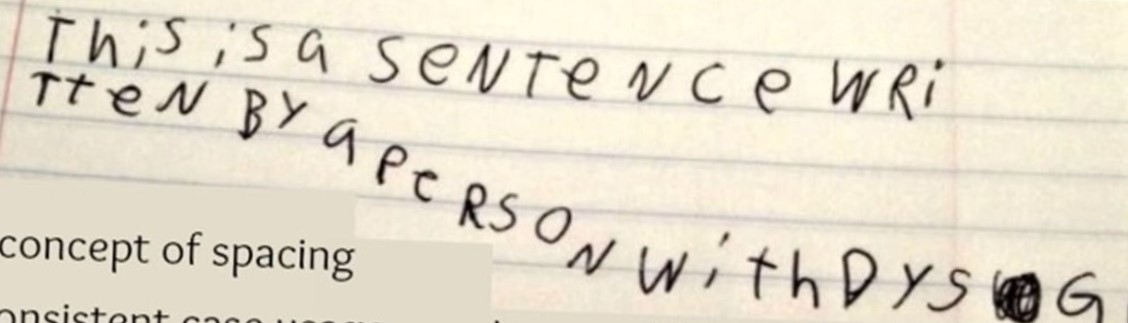 ThiS iS a SeNTeNce WRi
TteN BY a PeRSON WithDYS G
concept of spacing